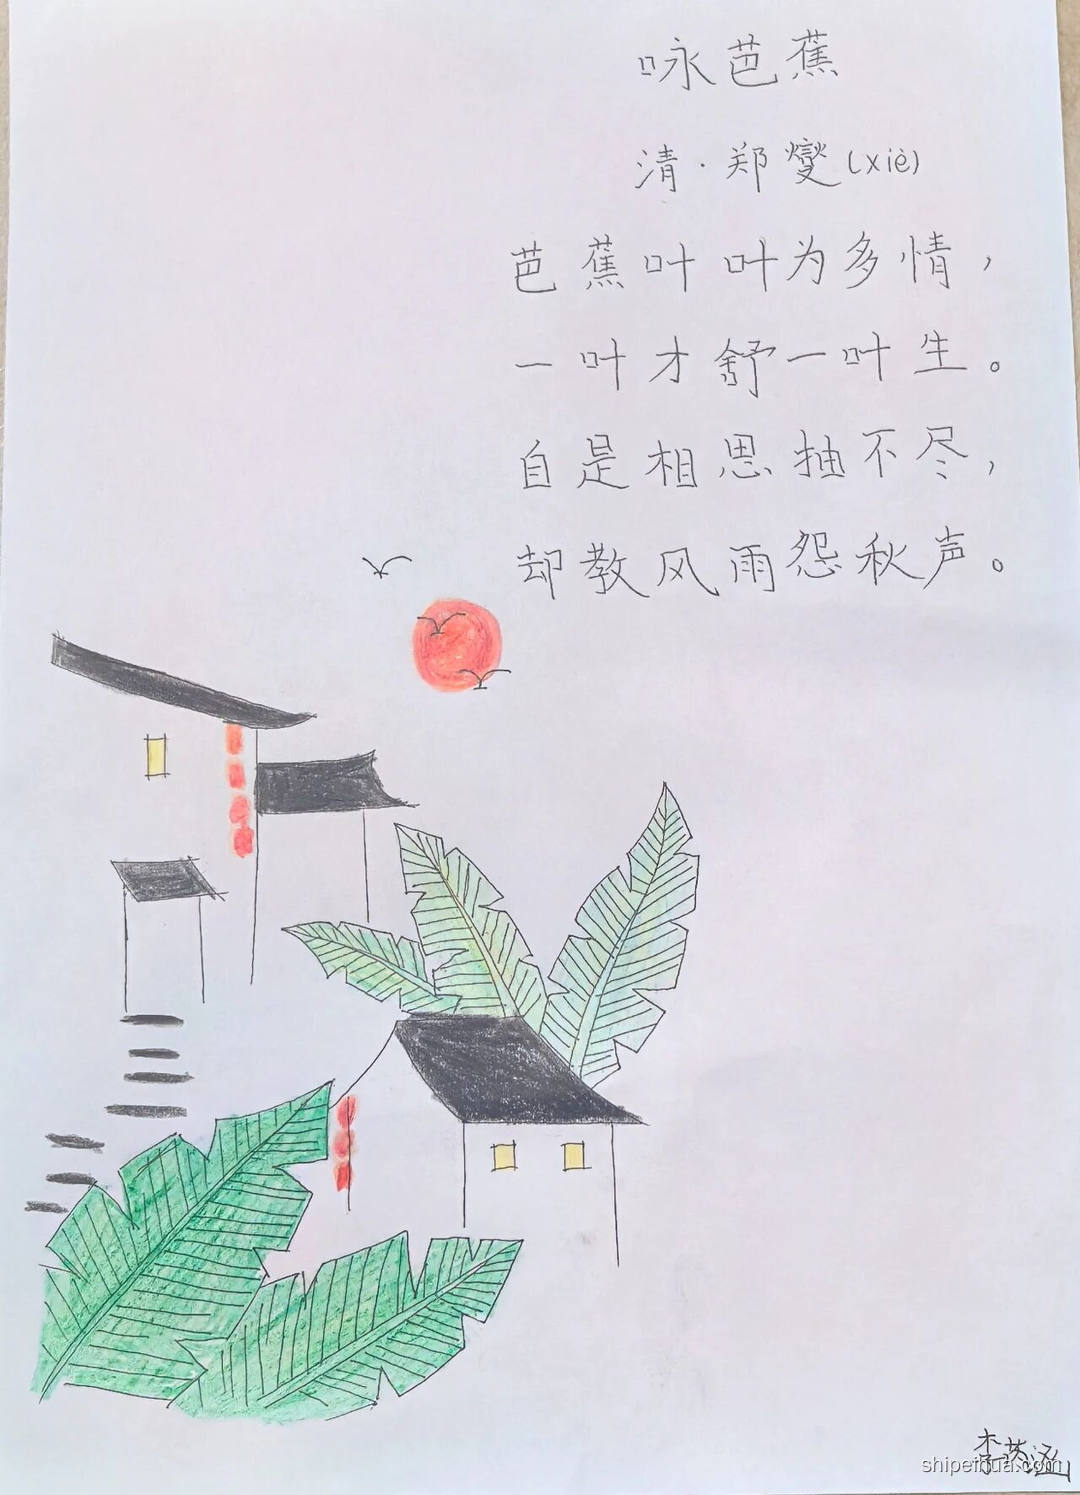 咏芭蕉
清·郑燮(xiè)
芭蕉叶叶为多情，
一叶才舒一叶生。
自是相思抽不尽，
却教风雨怨秋声。
shipeihua.com